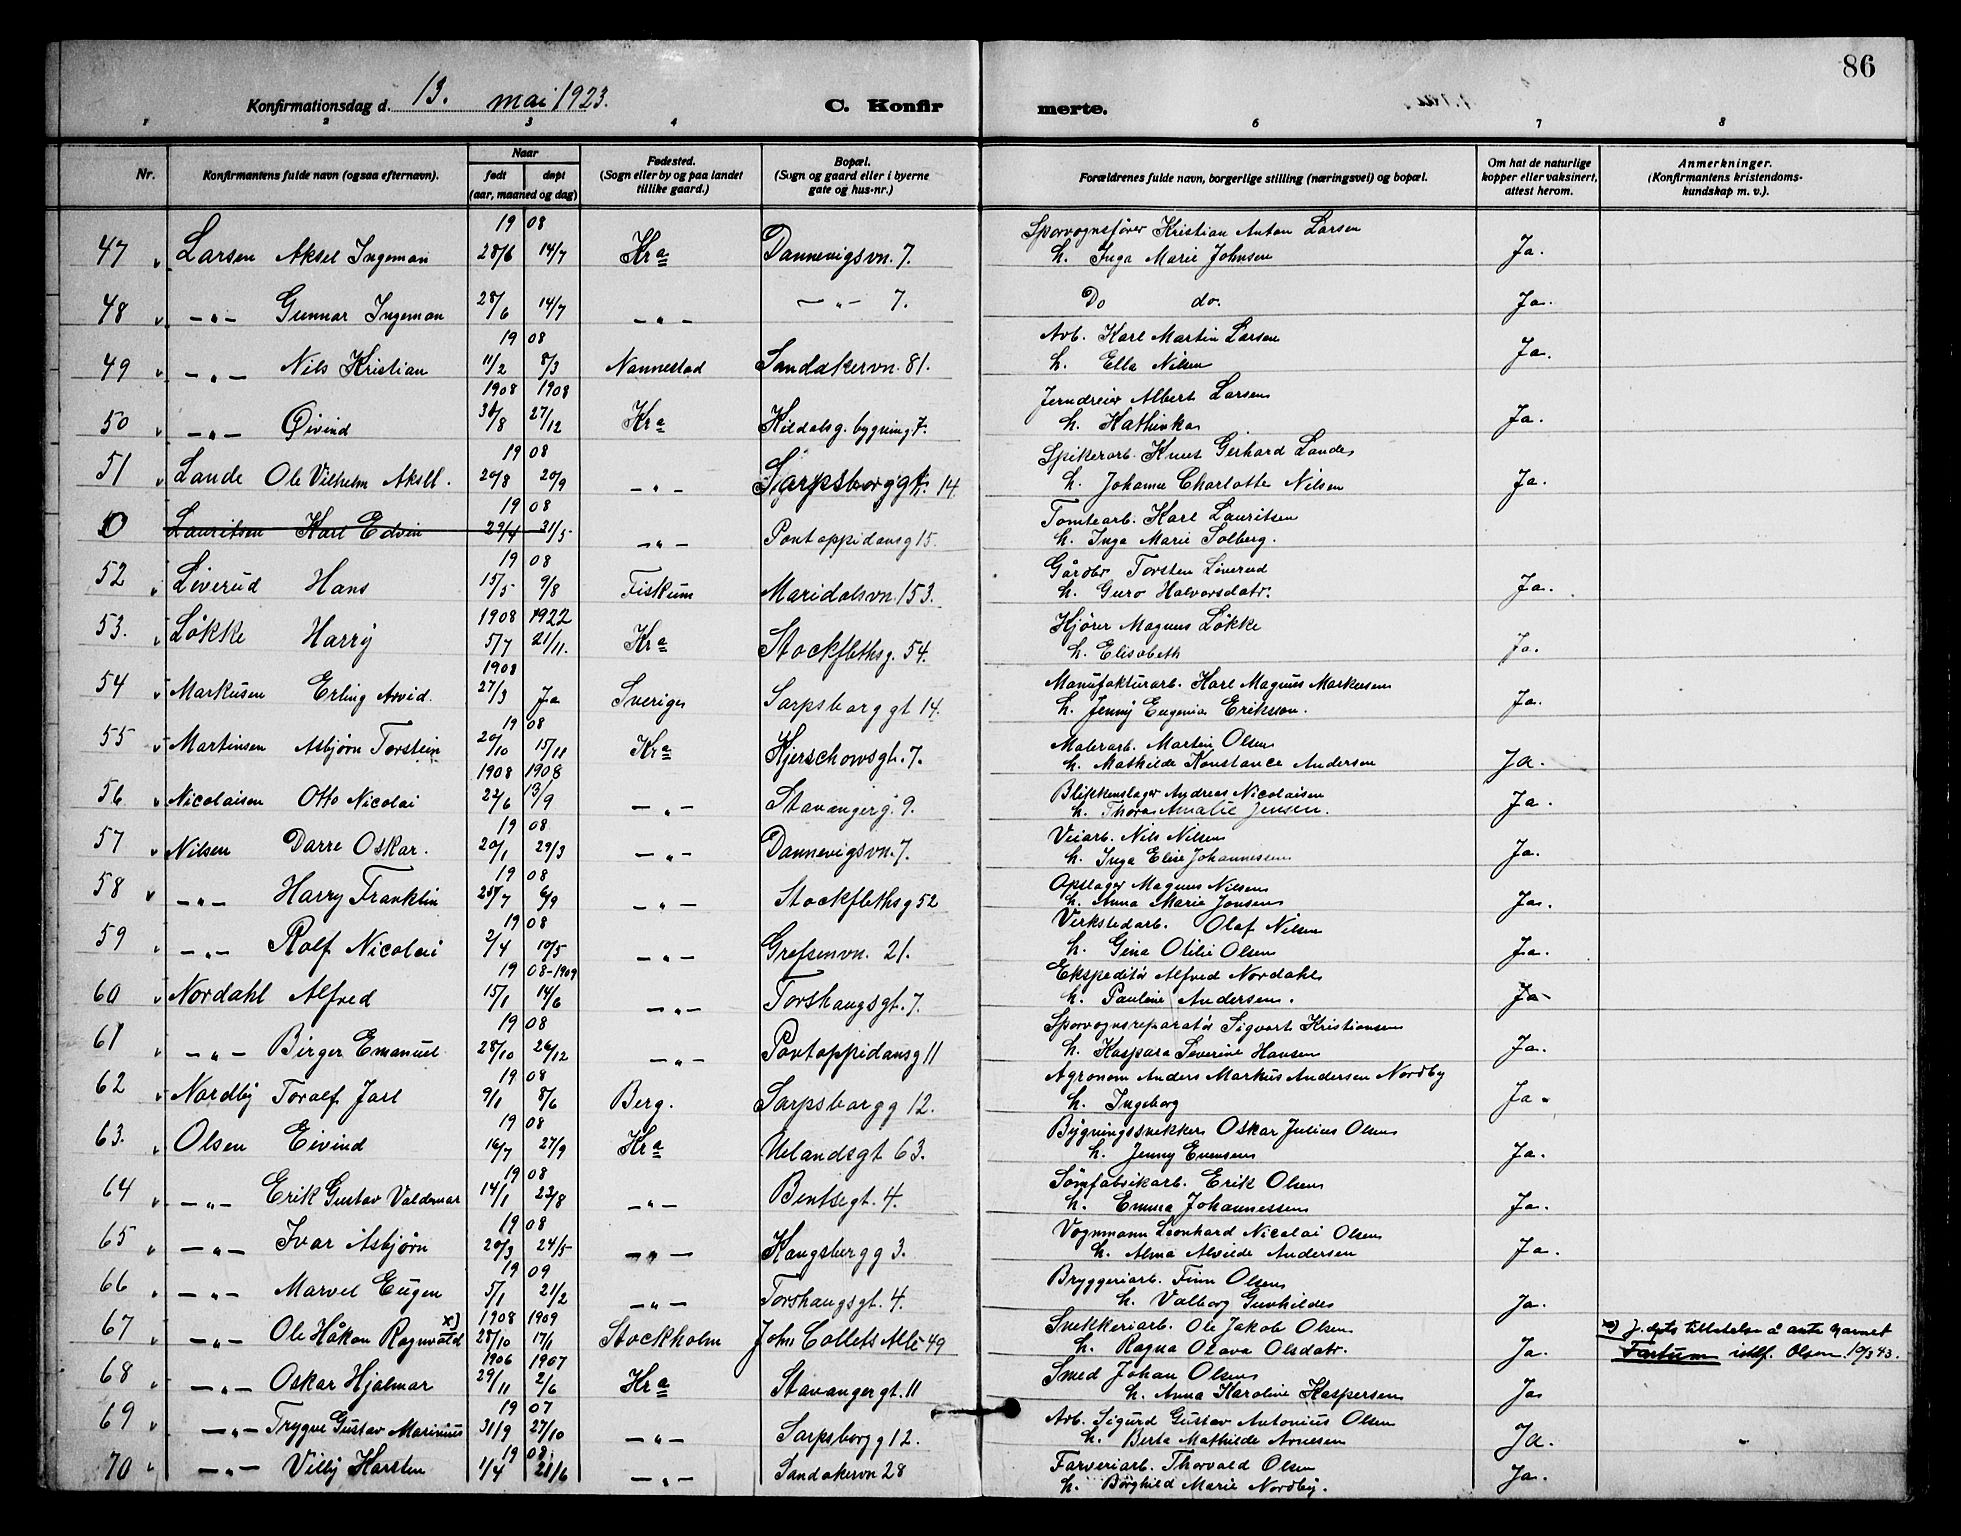 86
Konfirmationsdag d. 13. mai 1923. C. Konfirmerte.
1 2 3 4 5 6 7 8
Nr. Konfirmantens fulde navn (ogsaa efternavn). Naar født døpt (aar, maaned og dag) Fødested. (Sogn eller by og paa landet tillike gaard.) Bopæl. (Sogn og gaard eller i byerne gate og hus-nr.) Forældrenes fulde navn, borgerlige stilling (næringsvei) og bopæl. Om hat de naturlige kopper eller vaksinert, attest herom. Anmerkninger. (Konfirmantens kristendomskundskap m. v.).
19 08 Sporvognsfører Kristian Anton Larsen
47 Larsen Aksel Ingeman 28/6 14/7 Kra Dannevigsvn. 7. h. Inga Marie Johnsen Ja.
48 —„— Gunnar Ingeman 28/6 14/7 —„— —„— 7. Do do. Ja.
19 08 Arb. Karl Martin Larsen
49 —„— Nils Kristian 11/2 8/3 Nannestad Sandakervn. 81. h. Ella Nilsen Ja.
1908 1908 Jerndreier Albert Larsen
50 —„— Øivind /8 27/12 Kra Kildalsg. bygning 7. h. Kathinka Ja.
19 08 Spikerarb. Knut Gerhard Lande
51 Lande Ole Vilhelm Aksel. 20/8 20/9 —„— Sarpsborggt. 14. h. Johanne Charlotte Nilsen Ja.
19 08 Tomtearb. Karl Lauritsen
0 Lauritsen Karl Edvin 29/4 31/5 —„— Pontoppidansg 15. h. Inga Marie Solberg.
19 08 Gårdbr Torsten Liverud
52 Liverud Hans 15/5 9/8 Fiskum Maridalsvn. 153. h. Guro Halvorsdatr. Ja.
1908 1922 Kjører Magnus Løkke
53. Løkke Harry 5/7 21/11. Kra Stockflethsg. 54. h. Elisabeth Ja.
1908 Manufakturarb. Karl Magnus Markusen
54 Markusen Erling Arvid. 27/3 Ja Sverige Sarpsborggt 14. h. Jenny Eugenia Eriksson. Ja.
19 08 Malerarb. Martin Olsen
55 Martinsen Asbjørn Torstein 20/10 15/11 Kra Kjerschowsgt. 7. h. Mathilde Konstance Andersen Ja.
1908 1908 Blikkenslager Andreas Nicolaisen
56. Nicolaisen Otto Nicolai 22/6 13/9 —„— Stavangerg. 9. h. Thora Amalie Jensen. Ja.
19 08 Veiarb. Nils Nilsen
57 Nilsen Darre Oskar. 20/1 29/3 —„— Dannevigsvn. 7. h. Inga Elise Johannessen Ja.
19 08 Opslager Magnus Nilsen
58 —„— Harry Franklin 25/7 6/9 —„— Stockflethsg 52 h. Anna Marie Jonsen Ja.
19 08 Verkstedarb. Olaf Nilsen
59 —„— Rolf Nicolai 2/4 10/5 —„— Grefsenvn. 21. h. Gina Otilie Olsen Ja.
19 08-1909 Ekspeditør Alfred Nordahl
60 Nordahl Alfred 15/1 14/6 —„— Torshaugsgt. 7. h. Pauline Andersen. Ja
19 08 Sporvognsreparatør Sigvart Kristiansen
61 —„— Birger Emanuel. 28/10 26/12 —„— Pontoppidansg 11 h. Kaspara Severine Hansen Ja.
19 08 Agronom Anders Markus Andersen Nordby
62 Nordby Toralf Jarl 9/1 8/6 Berg. Sarpsborgg 12. h. Ingeborg Ja.
19 08 Bygningssnekker Oskar Julius Olsen
63. Olsen Eivind 16/7 27/9 Kra Uelandsgt 63. h. Jenny Evensen Ja.
19 08 Sømfabrikarb. Erik Olsen
64 —„— Erik Gustav Valdemar 14/1 23/8 —„— Bentsegt. 4. h. Emma Johannessen Ja.
19 08 Vognmann Leonhard Nicolai Olsen
65 —„— Ivar Asbjørn 20/3 24/5 —„— Kongsbergg 3. h. Alma Alvilde Andersen Ja.
19 09 Bryggeriarb. Finn Olsen
66 —„— Marvel Eugen 5/1 21/2 —„— Torshaugsgt. 4. h. Valborg Gunhilde Ja.
1908 1909 Snekkeriarb. Ole Jakob Olsen x) J. dpts tillatelse å anta navnet
67 —„— Ole Håkon Ragnvald x) 28/10 17/1 Stockholm Johs Collets Alle 49 h. Ragna Olava Olsdatr. Ja. Fartum istf. Olsen. 10/3 43.
1906 1907 Smed Johan Olsen
68 —„— Oskar Hjalmar 29/11 2/6 Kra Stavangergt. 11 h. Anna Karoline Kaspersen Ja
19 07 Arb. Sigurd Gustav Antonius Olsen
69 —„— Trygve Gustav Marinius 31/9 27/10 —„— Sarpsborgg 12. h. Berta Mathilde Arnesen Ja.
19 08 Farveriarb. Thorvald Olsen
70 —„— Villy Karsten 1/4 21/6 —„— Sandakervn 28 h. Borghild Marie Nordby. Ja.